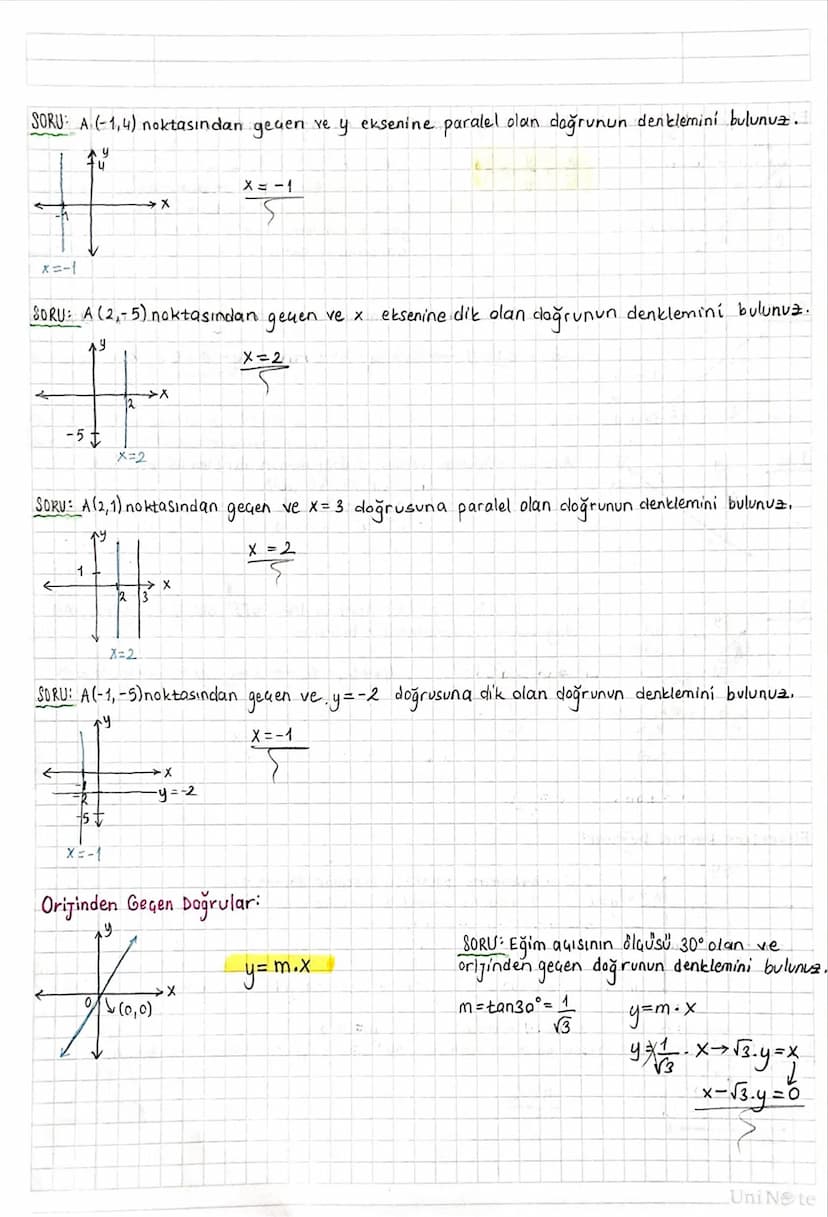 SORU: A(-1,4) noktasından geçen ve y eksenine paralel olan doğrunun denklemini bulunuz.
y
4
x = -1
x
-1
x=-1
SORU: A(2,-5) noktasından geçen ve x eksenine dik olan doğrunun denklemini bulunuz.
y
x=2
x
2
-5
x=2
SORU: A(2,1) noktasından geçen ve x=3 doğrusuna paralel olan doğrunun denklemini bulunuz.
y
x = 2
1
x
2 3
x=2
SORU: A(-1,-5) noktasından geçen ve y=-2 doğrusuna dik olan doğrunun denklemini bulunuz.
y
x=-1
x
-1
-2
y=-2
-5
x=-1
Orijinden Geçen Doğrular:
y
y=m.x
x
0
(0,0)
SORU: Eğim açısının ölçüsü 30° olan ve
orijinden geçen doğrunun denklemini bulunuz.
m=tan30°=1/√3
y=m.x
y=1/√3 . x→√3.y=x
x-√3.y=0
UniNote